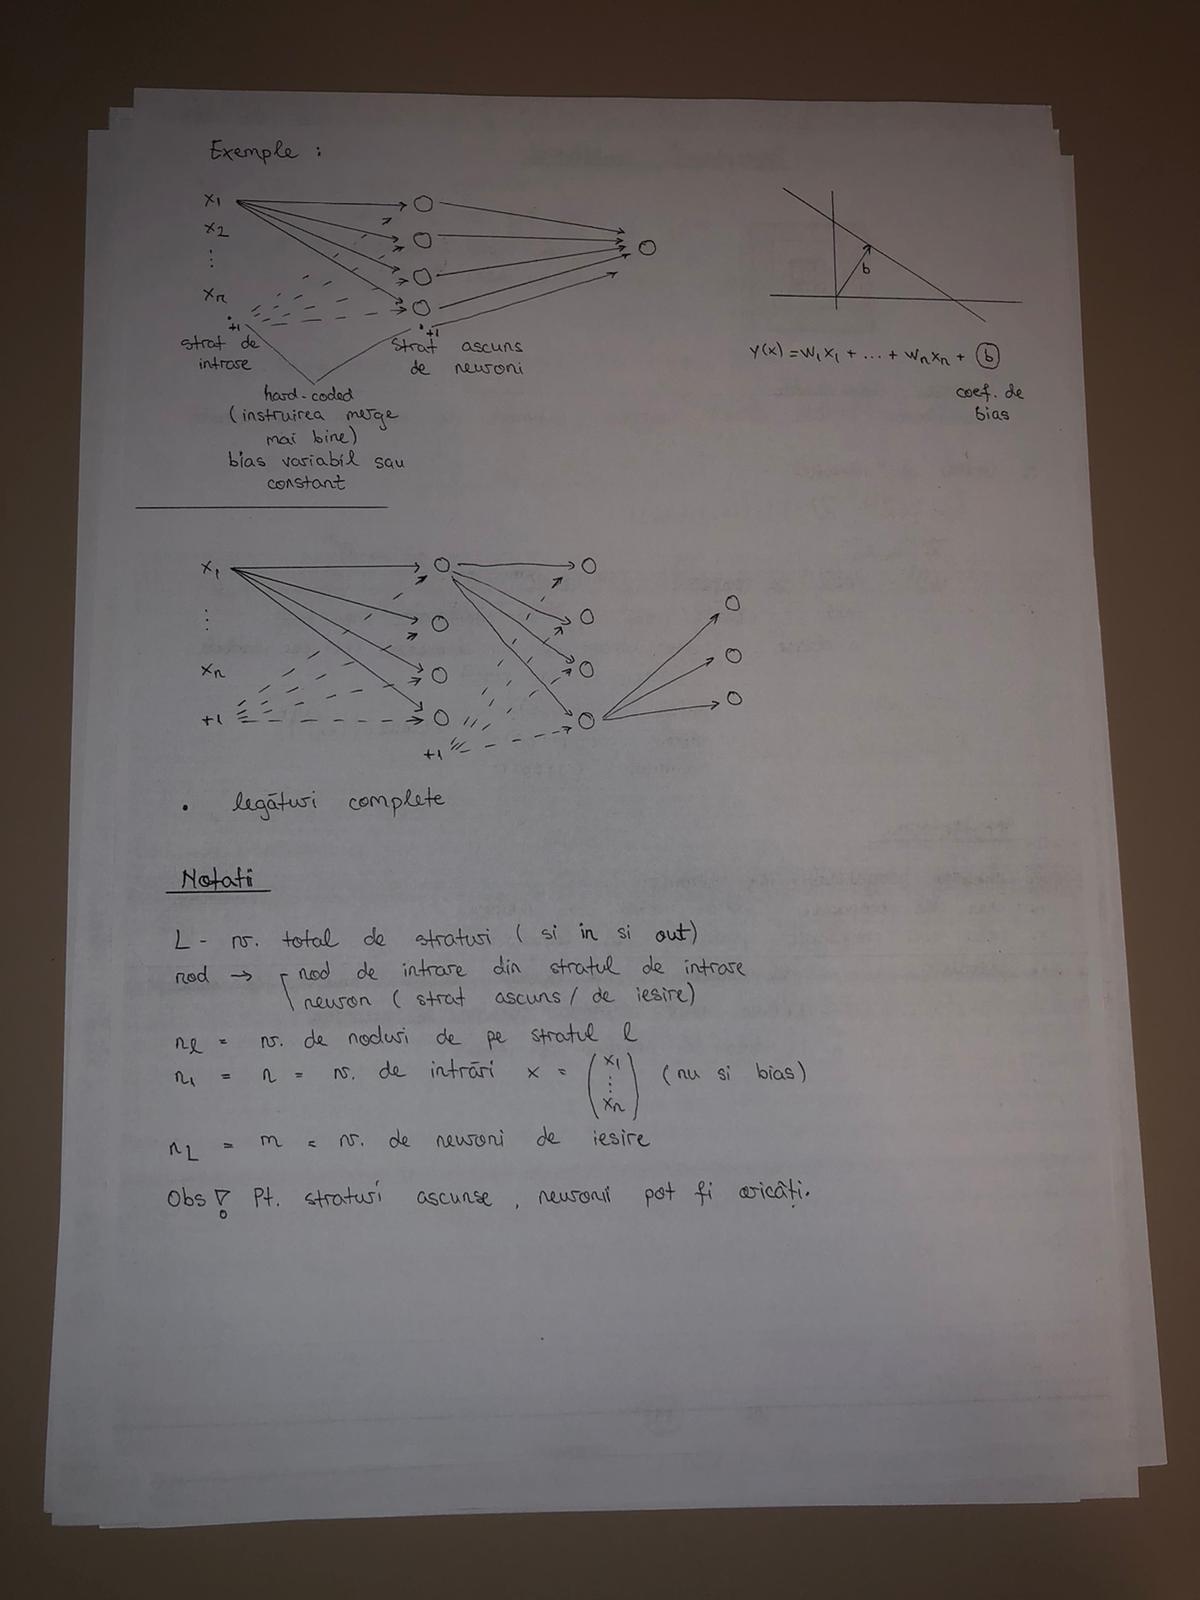 Exemple :
x1
x2
⋮
xn
+1
strat de
intrare
+1
strat ascuns
de neuroni
hard-coded
(instruirea merge
mai bine)
bias variabil sau
constant
b
y(x) = w1x1 + ... + wnxn + b
coef. de
bias
x1
⋮
xn
+1
+1
• legături complete
Notatii
L - nr. total de straturi ( si in si out)
nod → nod de intrare din stratul de intrare
neuron ( strat ascuns / de iesire)
nl = nr. de noduri de pe stratul l
n1 = n = nr. de intrări x = (x1 ⋮ xn) (nu si bias)
nL = m = nr. de neuroni de iesire
Obs! Pt. straturi ascunse, neuronii pot fi oricâți.